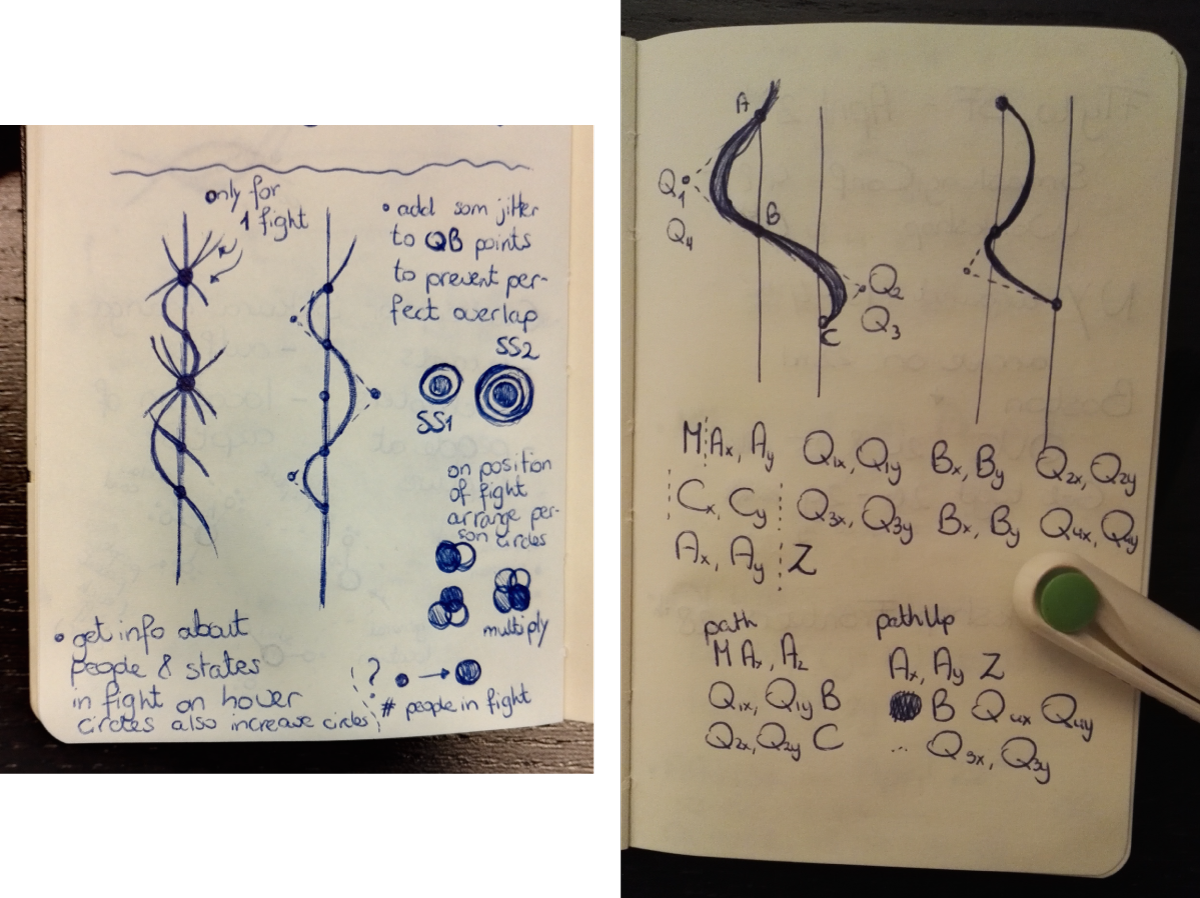 only for
1 fight
• add som jitter
to QB points
to prevent per-
fect overlap
SS2
SS1
on position
of fight
arrange per-
son circles
multiply
• get info about
people & states
in fight on hover
circles also increase circles
?
# people in fight
A
Q1
Q4
B
Q2
Q3
C
M Ax, Ay Q1x, Q1y Bx, By Q2x, Q2y
Cx, Cy Q3x, Q3y Bx, By Q4x, Q4y
Ax, Ay Z
path
M Ax, Az
Q1x, Q1y B
Q2x, Q2y C
pathUp
Ax, Ay Z
B Q4x Q4y
... Q3x, Q3y